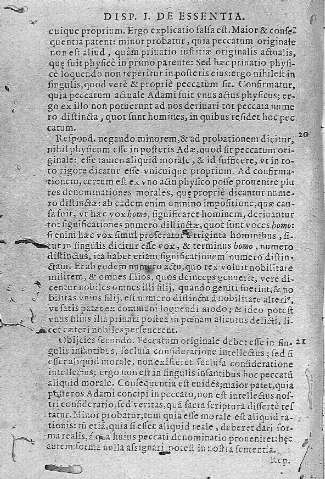 DISP. I. DE ESSENTIA.
cuique proprium. Ergo explicatio falsa est. Maior & conse
quentia patent: minor probatur, quia peccatum originale
non est aliud, quàm priuatio iustitiæ originalis actualis,
quę fuit physicè in primo parente: Sed hæc priuatio physi-
cè loquendo non reperitur in posteris eius: ergo nihil est in
singulis, quod verè & propriè peccatum sit. Confirmatur,
quia peccatum actuale Adami fuit vnus actus physicus: er-
go ex illo non potuerunt ad nos deriuari tot peccata nume
ro distincta, quot sunt homines, in quibus residet hoc pec
catum.
Respond. negando minorem, & ad probationem dicitur, 20
nihil physicum esse in posteris Adæ, quod sit peccatum ori-
ginale: esse tamen aliquid morale, & id sufficere, vt in to-
to rigore dicatur esse vnicuique proprium. Ad confirma-
tionem, certum est ex vno actu physico posse prouenire plu
res denominationes morales, quæ propriè dicantur nume-
ro distinctæ: ab eadem enim omnino impositione, quæ cau
sa fuit, vt hæc vox homo, significaret hominem, deriuantur
tot significationes numero distinctæ, quot sunt voces homo:
si enim hæc vox simul proferatur
tur in singulis dicitur esse vox, & terminus homo, numero
distinctus, ita habet etiam significationem numero distin-
ctam. Ecce eodem numero actu, quo rex voluit nobilitare
militem, & omnes filios, quos deinceps genuerit, verè di-
centur nobiles omnes illi filij, quando geniti fuerint, & no
bilitas vnius filij, est numero distincta à nobilitate alterius,
vt satis patet ex communi loquendi modo; & ideo potest
vnus ex illis priuari in pœnam alicuius delicti, li-
cet cæteri nobiles perseuerent.
Obijcies secundò. Peccatum originale debet esse in sin- 21
gulis infantibus, seclusa consideratione intellectus; sed si
esset aliquid morale, non esset seclusa consideratione
intellectus; ergo non est in singulis infantibus hoc peccatū
aliquid morale. Consequentia est euidēs; maior patet, quia
posteros Adami concipi in peccato, non est intellectus nos-
tri consideratio, sed veritas, quā sacra scriptura disertè tes-
tatur. Minor probatur, tum quia esse morale est aliquid ra-
tionis: tū etiā, quia si esset aliquid reale, deberet dari for-
ma realis, à qua huius peccati denominatio proueniret: hæc
autem forma nulla assignari potest in nostra sententia.
Resp.